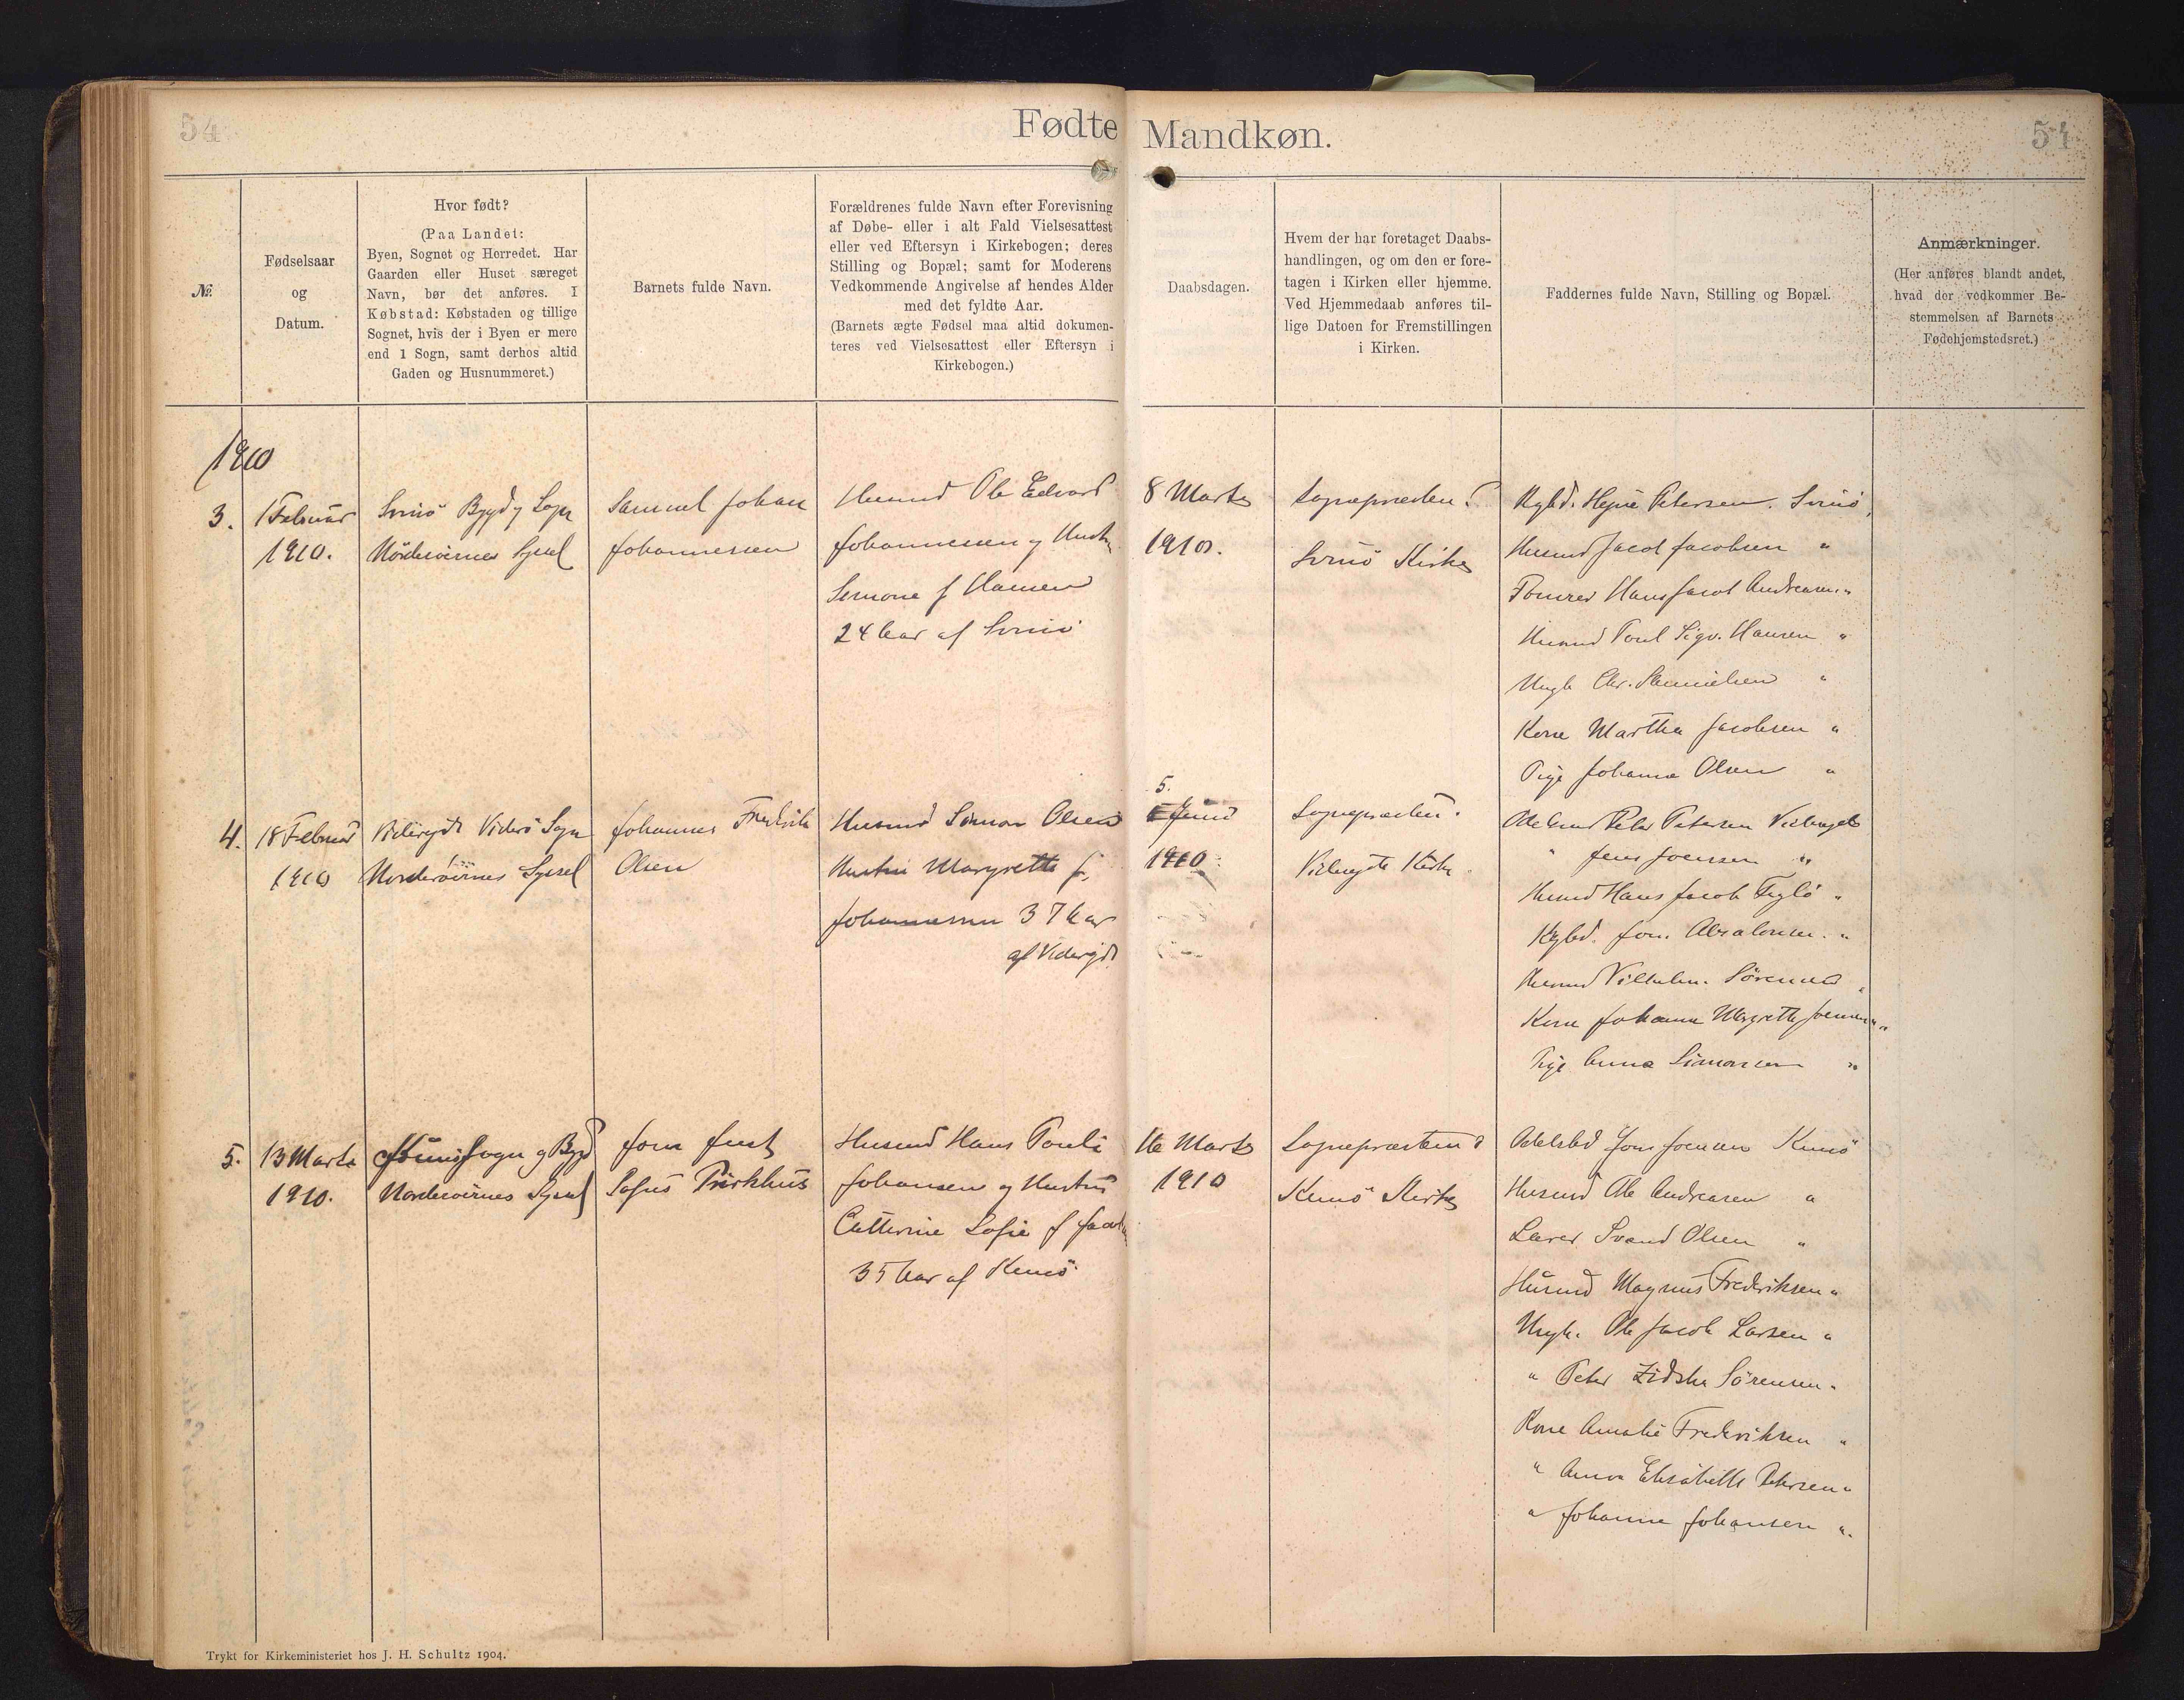 54
Fødte
Mandkøn.
54
№
Fødselsaar
og
Datum.
Hvor født?
(Paa Landet:
Byen, Sognet og Herredet. Har
Gaarden eller Huset særeget
Navn, bør det anføres. I
Købstad: Købstaden og tillige
Sognet, hvis der i Byen er mere
end 1 Sogn, samt derhos altid
Gaden og Husnummeret.)
Barnets fulde Navn.
Forældrenes fulde Navn efter Forevisning
af Døbe- eller i alt Fald Vielsesattest
eller ved Eftersyn i Kirkebogen; deres
Stilling og Bopæl; samt for Moderens
Vedkommende Angivelse af hendes Alder
med det fyldte Aar.
(Barnets ægte Fødsel maa altid dokumen-
teres ved Vielsesattest eller Eftersyn i
Kirkebogen.)
Daabsdagen.
Hvem der har foretaget Daabs-
handlingen, og om den er fore-
tagen i Kirken eller hjemme.
Ved Hjemmedaab anføres til-
lige Datoen for Fremstillingen
i Kirken.
Faddernes fulde Navn, Stilling og Bopæl.
Anmærkninger.
(Her anføres blandt andet,
hvad der vedkommer Be-
stemmelsen af Barnets
Fødehjemstedsret.)
1910
3.
1 Februar
1910.
Svinö Bygd og Sogn
Norderöernes Syssel
Samuel Johan
Johannessen
Husmd Ole Edvard
Johannessen og Hustru
Simone f Hansen
24 Aar af Svinö
8 Marts
1910.
Sognepræsten i
Svinö Kirke
Kgbd. Petersen. Svinö,
Husmd Jacob Jacobsen "
Tömrer Hans Jacob Andreasen "
Husmd Poul Sigv. Hansen "
Ungk Chr.
Kone Martha Jacobsen "
Pige Johanna Olsen "
4.
18 Februar
1910
Viderejde Viderö Sogn
Norderöernes Syssel
Johannes Fredrik
Olsen
Husmd Simon Olsen
Hustru Margrethe f.
Johannessen 37 Aar
af Viderejde
5.
Juni
1910.
Sognepræsten.
Viderejde Kirke
Odelsmd Peter Petersen Viderejde
" Jens Joensen "
Husmd Hans Jacob Fuglö "
Kgbd. Jon. Absalonsen. "
Husmd Vilhelm. Sörensen "
Kone Johanne Margrethe Joensen "
Pige Anna Simonsen "
5.
13 Marts
1910.
Kunö Sogn og Bygd
Norderöernes Syssel
Jons Just
Sofus
Husmd Hans Pauli
Johansen og Hustru
Cathrine Sofie f
35 Aar af Kunö
16 Marts
1910
Sognepræsten i
Kunö Kirke
Odelsbd Jons Joensen Kunö
Husmd Ole Andreasen "
Lærer Svend Olsen "
Husmd Magnus Frederiksen "
Ungk. Ole Jacob Larsen "
" Peter Zidska Sörensen "
Kone Amalie Frederiksen "
" Anna Elisabeth Petersen "
" Johanne Johansen "
Trykt for Kirkeministeriet hos J. H. Schultz 1904.